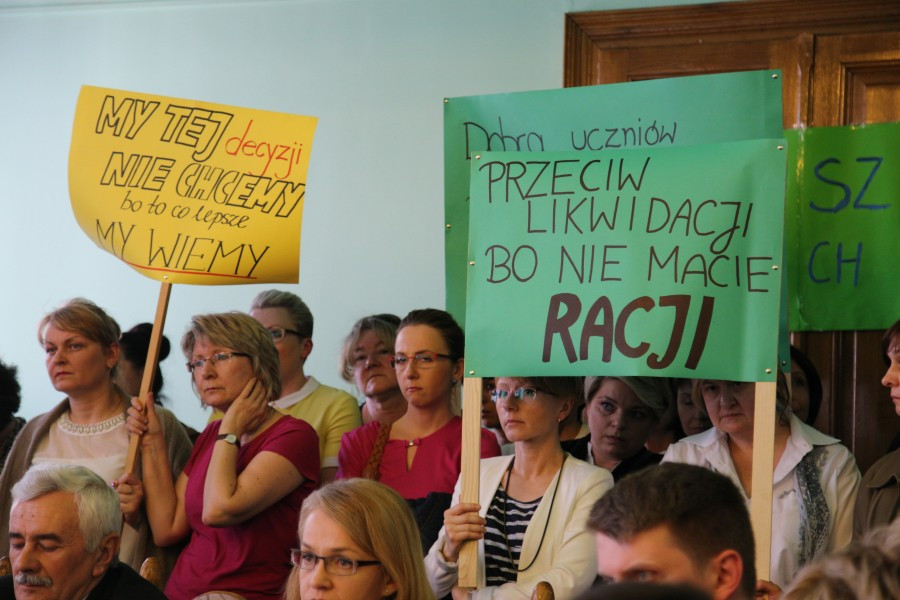 MY TEJ decyzji
NIE CHCEMY
bo to co lepsze
MY WIEMY
Dobra uczniów
PRZECIW
LIKWIDACJI
BO NIE MACIE
RACJI
SZ
CH